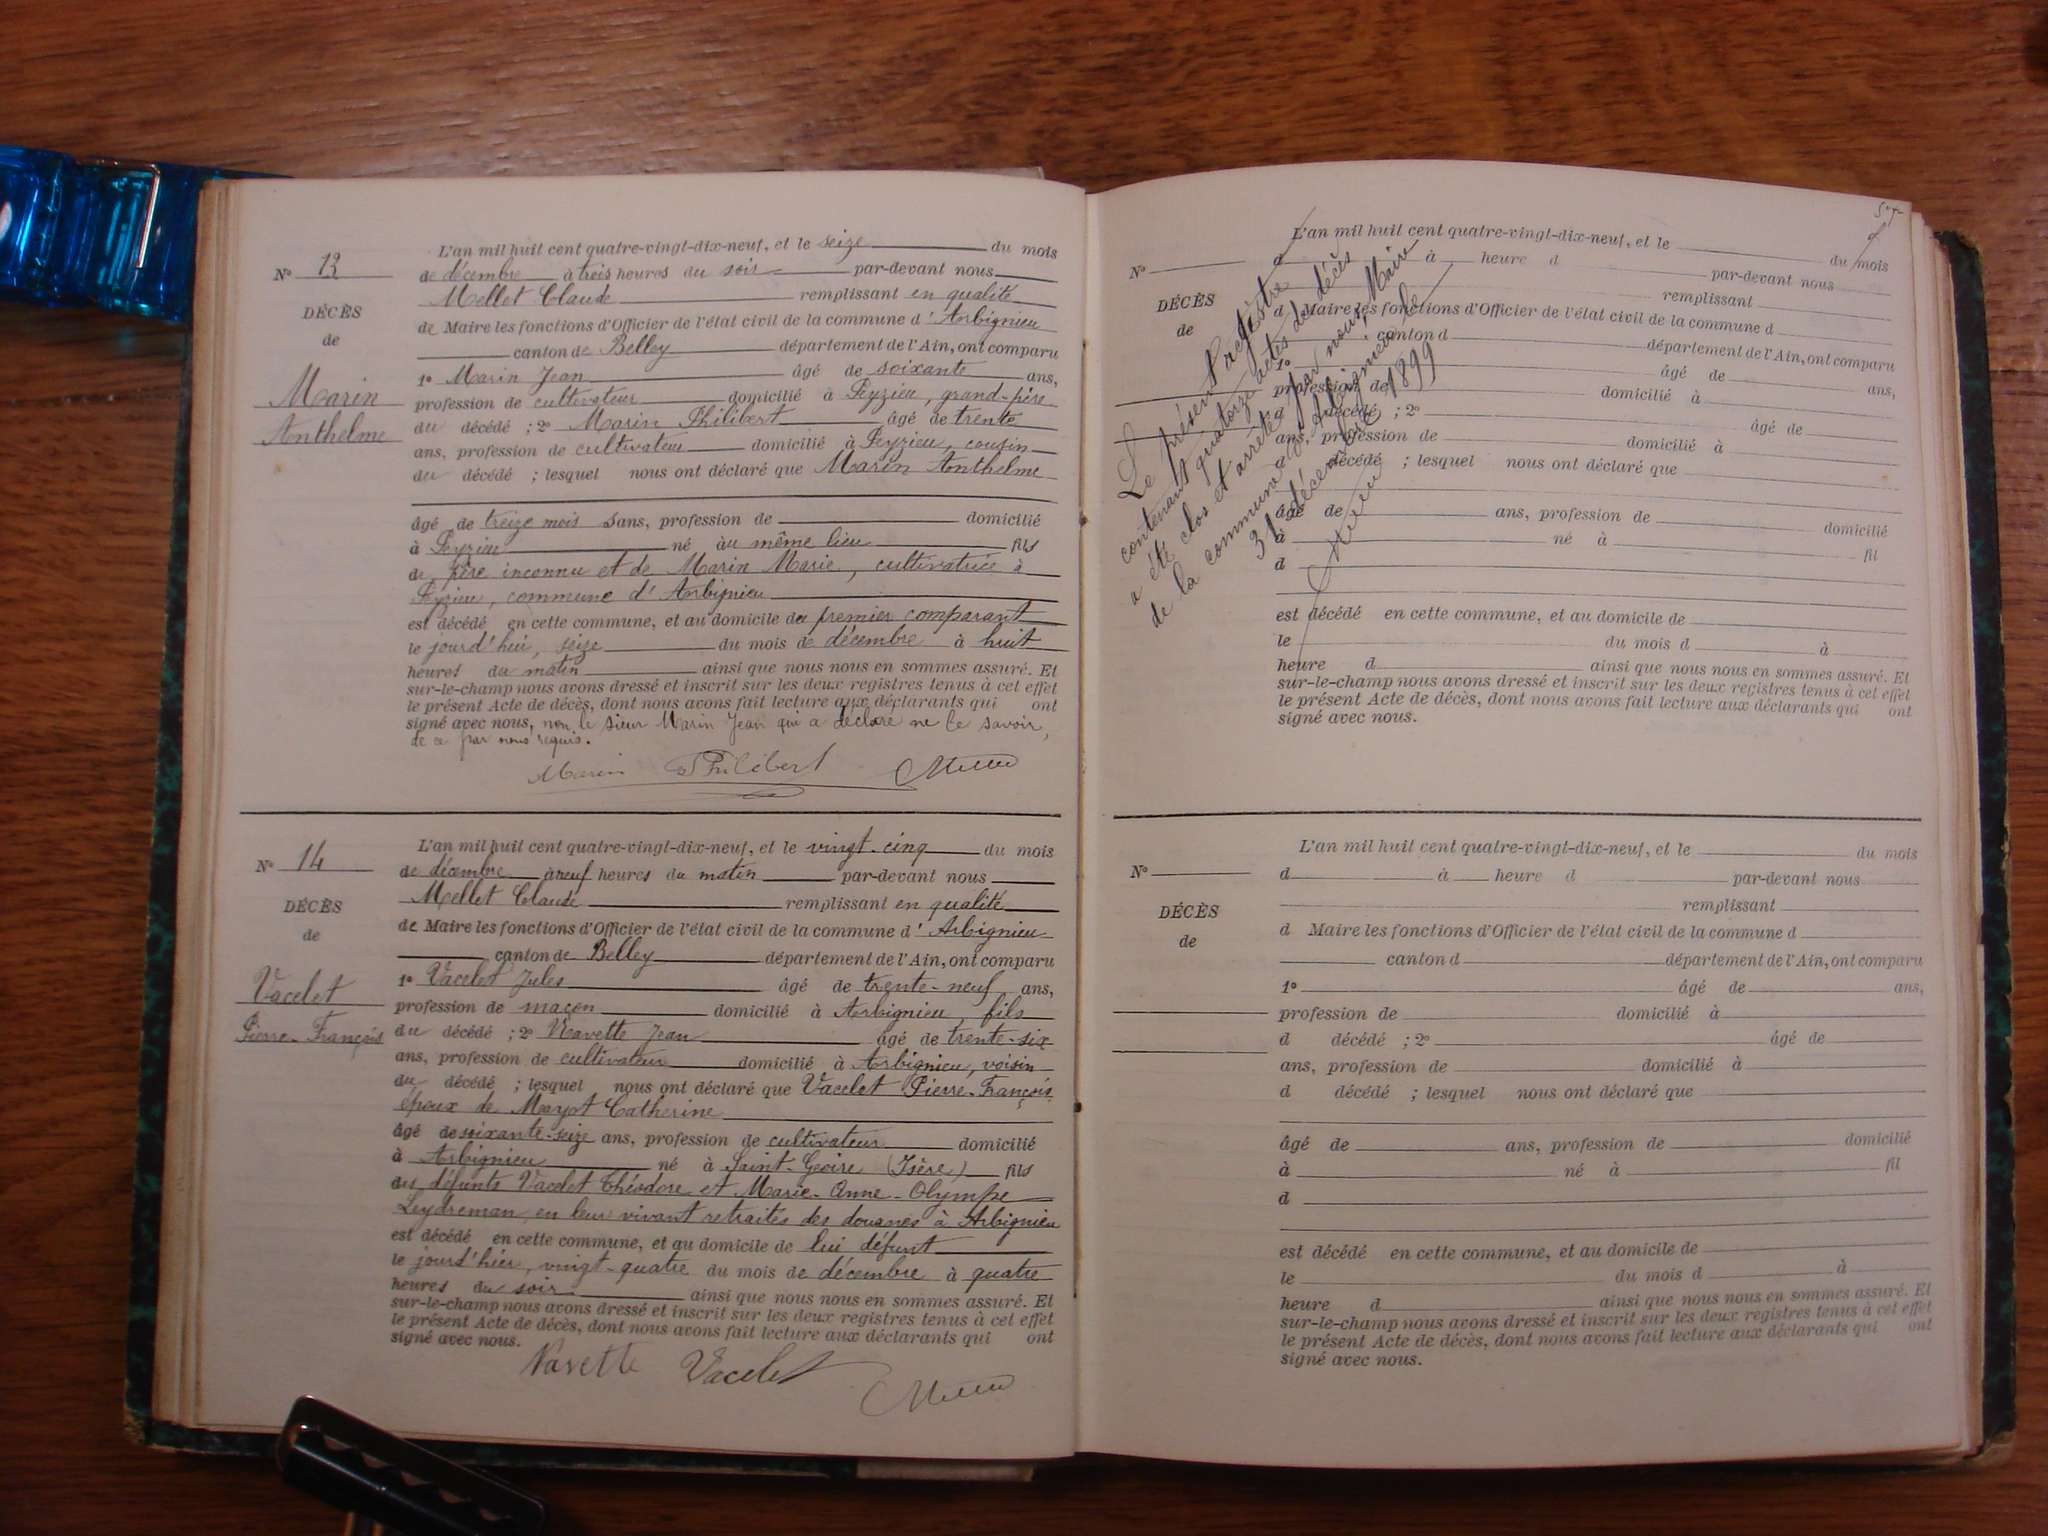 L'an mil huit cent quatre-vingt-dix-neuf, et le seize du mois
N° 13 de décembre à trois heures du soir par-devant nous
Mellet Claude remplissant en qualité
DÉCÈS
de Maire les fonctions d'Officier de l'état civil de la commune d'Arbignieu
de
canton de Belley département de l'Ain, ont comparu
1° Marin Jean âgé de soixante ans,
Marin
profession de cultivateur domicilié à Peyzieu, grand-père
du décédé ; 2° Marin Philibert âgé de trente
Anthelme
ans, profession de cultivateur domicilié à Peyzieu, cousin
du décédé ; lesquel nous ont déclaré que Marin Anthelme
âgé de treize mois sans, profession de domicilié
à Peyzieu né au même lieu fils
de père inconnu et de Marin Marie, cultivatrice à
Peyzieu, commune d'Arbignieu
est décédé en cette commune, et au domicile du premier comparant
le jourd'hui, seize du mois de décembre à huit
heures du matin ainsi que nous nous en sommes assuré. Et
sur-le-champ nous avons dressé et inscrit sur les deux registres tenus à cet effet
le présent Acte de décès, dont nous avons fait lecture aux déclarants qui ont
signé avec nous, non le sieur Marin Jean qui a déclaré ne le savoir,
de ce par nous requis.
Marin Philibert
L'an mil huit cent quatre-vingt-dix-neuf, et le vingt-cinq du mois
N° 14 de décembre à neuf heures du matin par-devant nous
Mellet Claude remplissant en qualité
DÉCÈS
de Maire les fonctions d'Officier de l'état civil de la commune d'Arbignieu
de
canton de Belley département de l'Ain, ont comparu
1° Vacelet Jules âgé de trente-neuf ans,
Vacelet
profession de maçon domicilié à Arbignieu, fils
du décédé ; 2° Navette Jean âgé de trente-six
Pierre-François
ans, profession de cultivateur domicilié à Arbignieu, voisin
du décédé ; lesquel nous ont déclaré que Vacelet Pierre-François
époux de Mayot Catherine
âgé de soixante-seize ans, profession de cultivateur domicilié
à Arbignieu né à Saint-Geoire (Isère) fils
des défunts Vacelet Théodore et Marie-Anne-Olympe
Leydreman en leur vivant retraités des douanes à Arbignieu
est décédé en cette commune, et au domicile de lui défunt
le jourd'hier, vingt-quatre du mois de décembre à quatre
heures du soir ainsi que nous nous en sommes assuré. Et
sur-le-champ nous avons dressé et inscrit sur les deux registres tenus à cet effet
le présent Acte de décès, dont nous avons fait lecture aux déclarants qui ont
signé avec nous.
Navette Vacelet
L'an mil huit cent quatre-vingt-dix-neuf, et le du mois
N° d à heure d par-devant nous
remplissant
DÉCÈS
d Maire les fonctions d'Officier de l'état civil de la commune d
de
canton d département de l'Ain, ont comparu
1° âgé de ans,
profession de domicilié à
d décédé ; 2° âgé de
ans, profession de domicilié à
d décédé ; lesquel nous ont déclaré que
âgé de ans, profession de domicilié
à né à fil
d
est décédé en cette commune, et au domicile de
le du mois d à
heure d ainsi que nous nous en sommes assuré. Et
sur-le-champ nous avons dressé et inscrit sur les deux registres tenus à cet effet
le présent Acte de décès, dont nous avons fait lecture aux déclarants qui ont
signé avec nous.
Le présent registre
contenant quatorze actes de décès
a été clos et arrêté par nous, Maire
de la commune d'Arbignieu le
31 décembre 1899
L'an mil huit cent quatre-vingt-dix-neuf, et le du mois
N° d à heure d par-devant nous
remplissant
DÉCÈS
d Maire les fonctions d'Officier de l'état civil de la commune d
de
canton d département de l'Ain, ont comparu
1° âgé de ans,
profession de domicilié à
d décédé ; 2° âgé de
ans, profession de domicilié à
d décédé ; lesquel nous ont déclaré que
âgé de ans, profession de domicilié
à né à fil
d
est décédé en cette commune, et au domicile de
le du mois d à
heure d ainsi que nous nous en sommes assuré. Et
sur-le-champ nous avons dressé et inscrit sur les deux registres tenus à cet effet
le présent Acte de décès, dont nous avons fait lecture aux déclarants qui ont
signé avec nous.